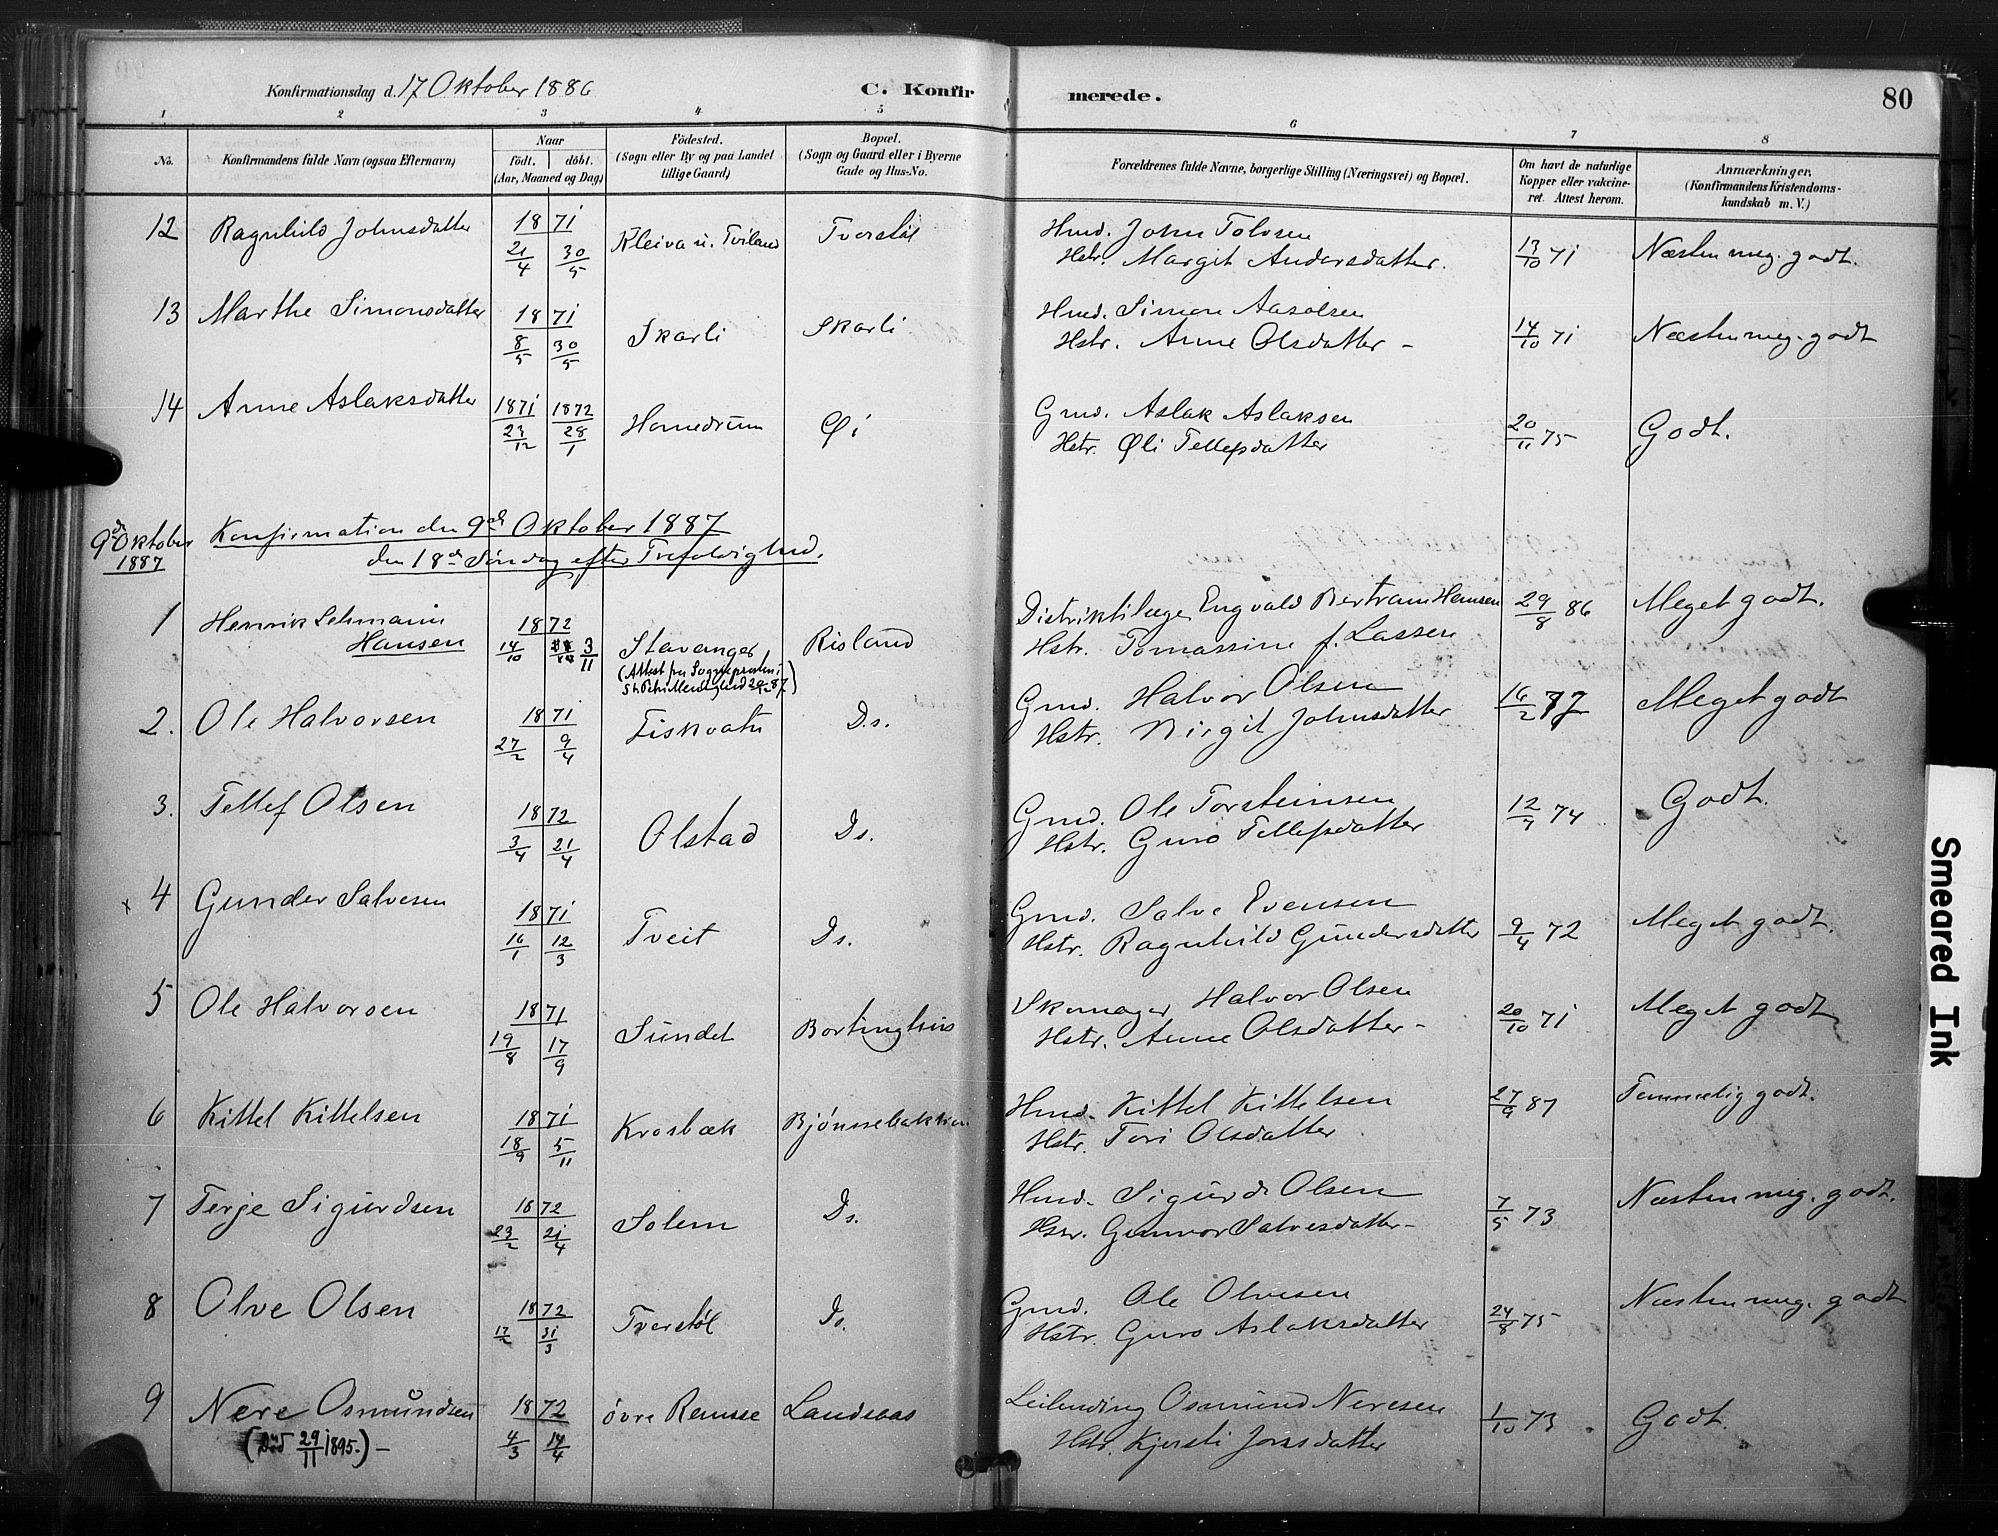 Konfirmationsdag d. 17 Oktober 1886 C. Konfirmerede. 80
1 2 3 4 5 6 7 8
No. Konfirmandens fulde Navn (ogsaa Efternavn) Naar født. døbt. (Aar, Maaned og Dag) Fødested. (Sogn eller By og paa Landet tillige Gaard) Bopæl. (Sogn og Gaard eller i Byerne Gade og Hus-No. Forældrenes fulde Navne, borgerlige Stilling (Næringsvei) og Bopæl. Om havt de naturlige Kopper eller vakcineret. Attest herom. Anmærkninger. (Konfirmandens Kristendomskundskab m. V.)
12 Ragnhild Johnsdatter 1871 21/4 30/5 Kleiva u. Tviland Tverstøl Hmd. John Tolvsen
Hstr. Margit Andersdatter. 13/10 71 Næsten meg. godt.
13 Marthe Simonsdatter 1871 8/5 30/5 Skarli Skarli Hmd. Simon Aasolsen
Hstr. Anne Olsdatter - 14/10 71 Næsten meg. godt
14 Anne Aslaksdatter 1871 23/12 1872 28/1 Homedrum Øi Gmd. Aslak Aslaksen
Hstr. Øli Tellefsdatter 20/11 75 Godt.
9d Oktober 1887
Konfirmation den 9de Oktober 1887
den 18de Søndag efter Trefoldighed.
1 Henrik Lehmann Hansen 1872 14/10 3/11 Stavanger Risland Distriktslæge Engvald Bertram Hansen
(Attest fra Sognepresten i
Hstr. Tomassine f. Lassen 29/8 86 Meget godt.
2. Ole Halvorsen 1871 27/2 9/4 Fiskvatn Ds. Gmd. Halvor Olsen
Hstr. Birgit Johnsdatter 16/2 77 Meget godt
3. Tellef Olsen 1872 3/4 21/4 Olstad Ds. Gmd. Ole Torsteinsen
Hstr. Guro Tellefsdatter 12/7 74 Godt.
x 4 Gunder Salvesen 1871 16/1 12/3 Tveit Ds. Gmd. Salve Evensen
Hstr. Ragnhild Gundersdatter 9/4 72 Meget godt.
5 Ole Halvorsen 1871 19/8 17/9 Sundet Bortinghus Skomager Halvor Olsen
Hstr. Anne Olsdatter - 20/10 71 Meget godt
6 Kittel Kittelsen 1871 18/9 5/11 Krosbæk Bjønnebakken Hmd. Kittel Kittelsen
Hstr. Tori Olsdatter 27/9 87 Temmelig godt.
7 Terje Sigurdsen 1872 23/2 21/4 Solem Ds. Hmd. Sigurd Olsen
Hstr. Gunvor Salvesdatter - 7/5 73 Næsten meg. godt.
8 Olve Olsen 1872 17/2 31/3 Tverstøl Ds. Gmd. Ole Olvesen
Hstr. Guro Aslaksdatter 24/8 75 Næsten meg. godt
9 Nere Osmundsen 1872 4/3 14/4 øvre Ramse Landsaas Leilending Osmund Neresen
(Død 29/11 1895.) - Hstr. Kjersti Jonsdatter 1/10 73 Godt.
Smeared Ink